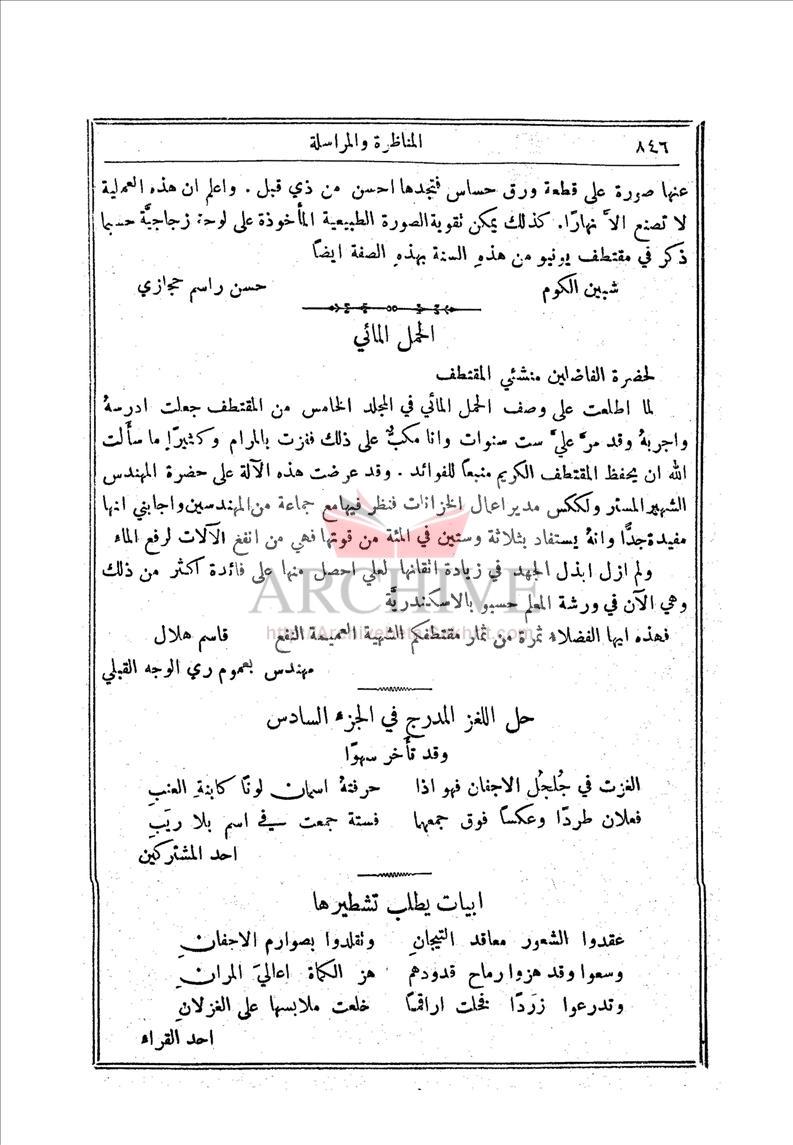 ٨٤٦ المناظرة والمراسلة
عنها صورة على قطعة ورق حساس فتجدها احسن من ذي قبل . واعلم ان هذه العملية
لا تصنع الاَّ نهارًا. كذلك يمكن نقوية الصورة الطبيعية المأخوذة على لوحة زجاجيَّة حسبما
ذكر في مقتطف يونيو من هذهِ السنة بهذهِ الصفة ايضًا
شبين الكوم حسن راسم حجازي
الحمل المائي
لحضرة الفاضلين منشئي المقتطف
لما اطلعت على وصف الحمل المائي في المجلد الخامس من المقتطف جعلت ادرسهُ
واجربهُ وقد مرَّ عليَّ ست سنوات وانا مكبٌّ على ذلك ففزت بالمرام وكثيرًا ما سأَلت
الله ان يحفظ المقتطف الكريم منبعًا للفوائد . وقد عرضت هذه الآلة على حضرة المهندس
الشهير المستر ولككس مدير اعمال الخزانات فنظر فيها مع جماعة من المهندسين واجابني انها
مفيدة جدًّا وانهُ يستفاد بثلاثة وستين في المئة من قوتها فهي من انفع الآلات لرفع الماء
ولم ازل ابذل الجهد في زيادة اتقانها لعلي احصل منها على فائدة اكثر من ذلك
وهي الآن في ورشة المعلم حسبو بالاسكندريَّة
فهذه ايها الفضلاء ثمرة من ثمار مقتطفكم الشهية العميمة النفع قاسم هلال
مهندس بعموم ري الوجه القبلي
ARCHIVE
حل اللغز المدرج في الجزء السادس
وقد تأَخر سهوًا
الغزت في جُلجُل الاجفان فهو اذا حرفتهُ اسمان لونًا كابنةِ العنبِ
فعلان طردًا وعكسًا فوق جمعها فستة جمعت في اسم بلا ريَبِ
احد المشتركين
ابيات يطلب تشطيرها
عقدوا الشعور معاقد التيجانِ وتقلدوا بصوارم الاجفانِ
وسعوا وقد هزوا رماح قدودهم هز الكماة اعاليَ المرانِ
وتدرعوا زرَدًا فخلت اراقمًا خلعت ملابسها على الغزلانِ
احد القراء